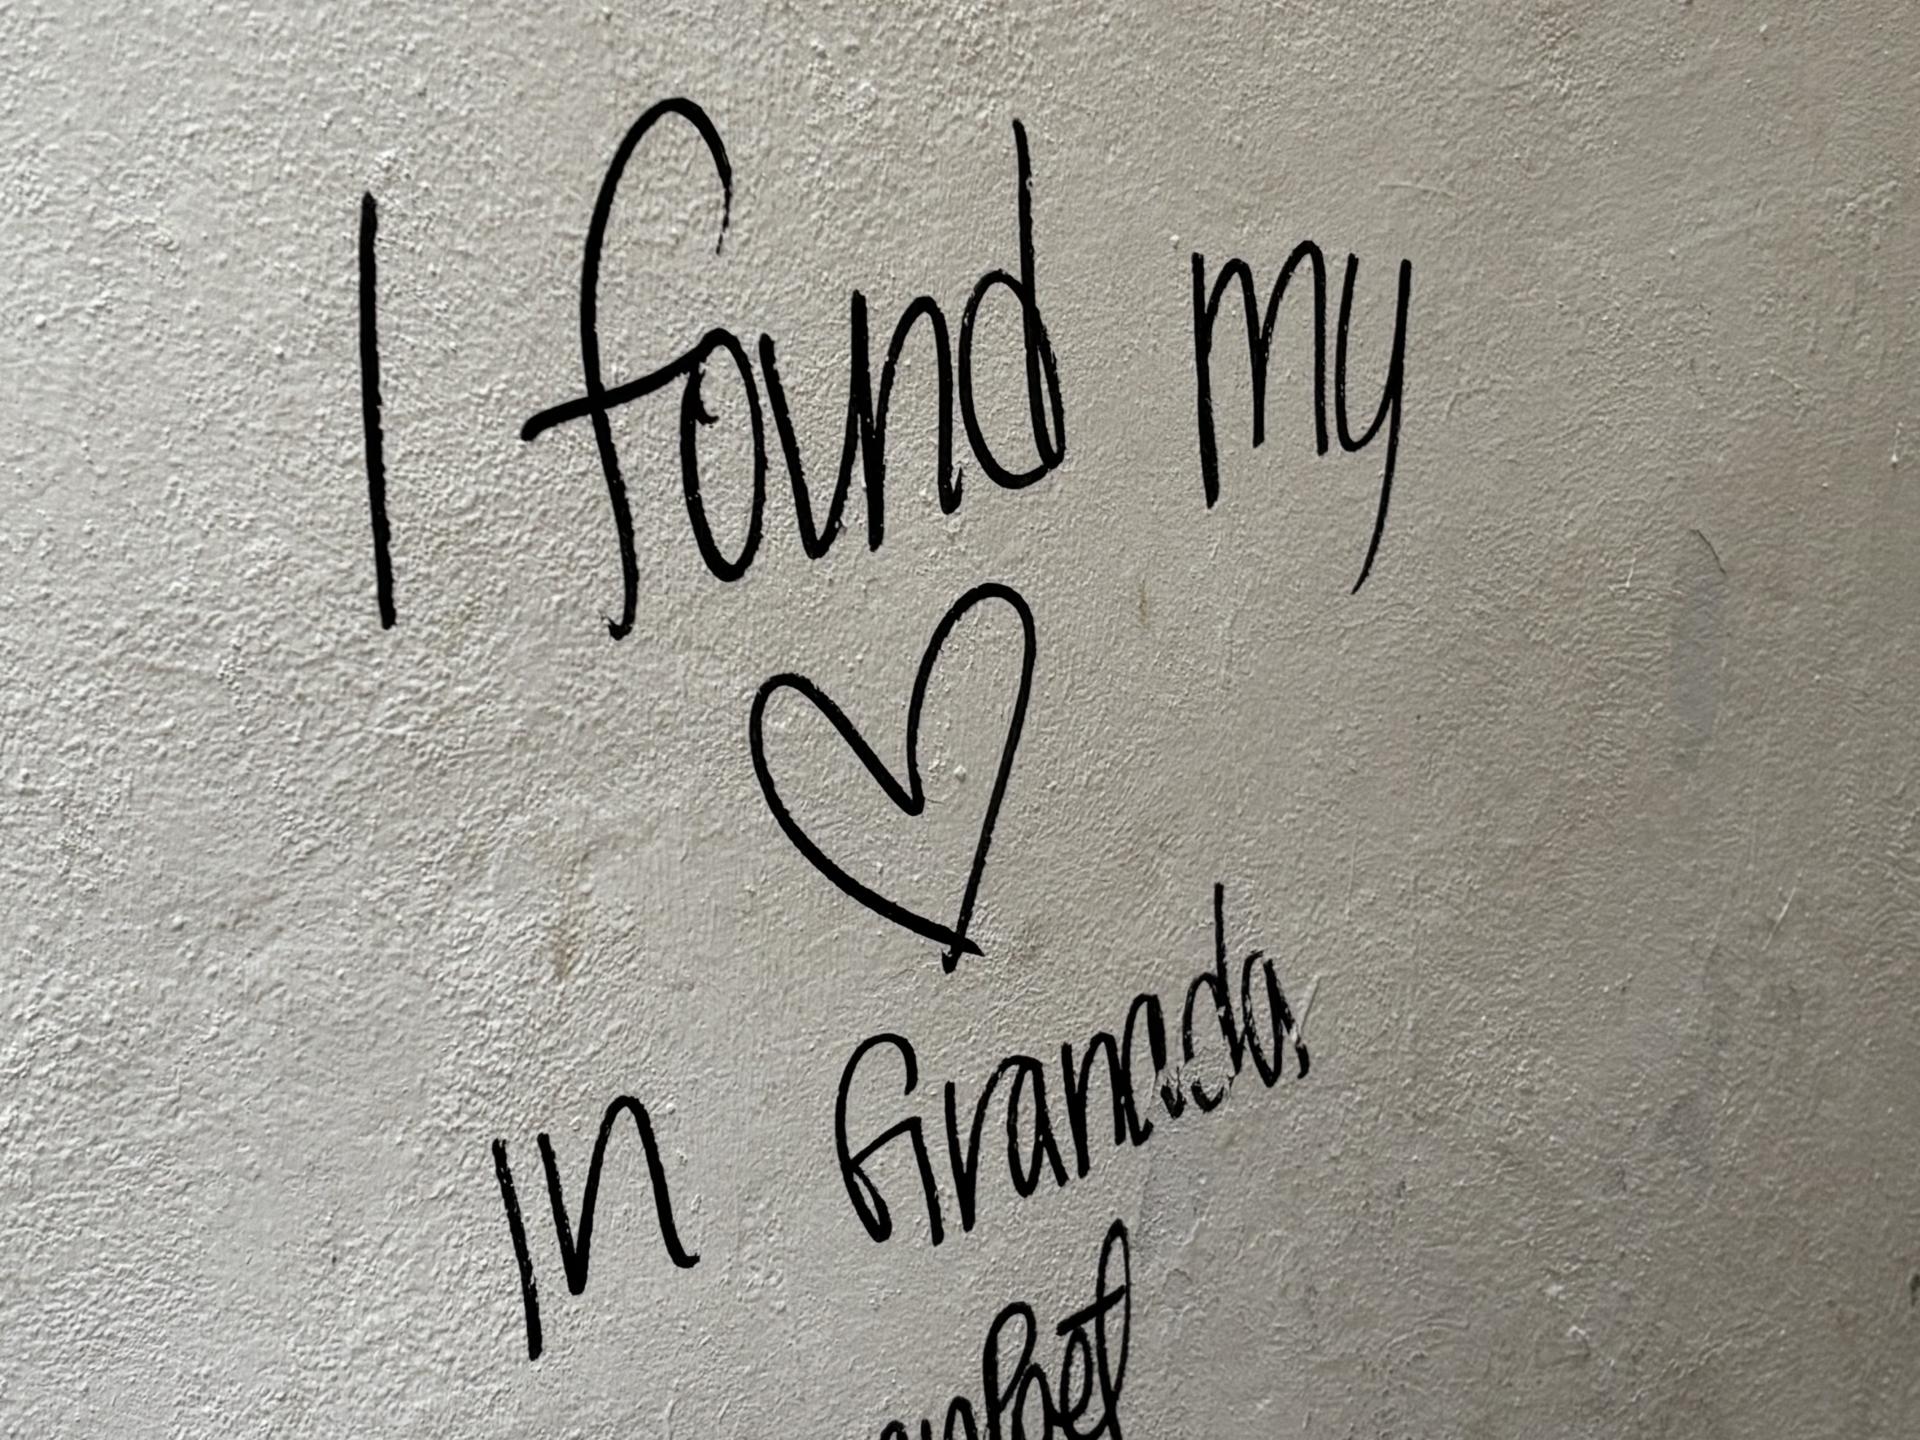 I found my
♡
in Granada